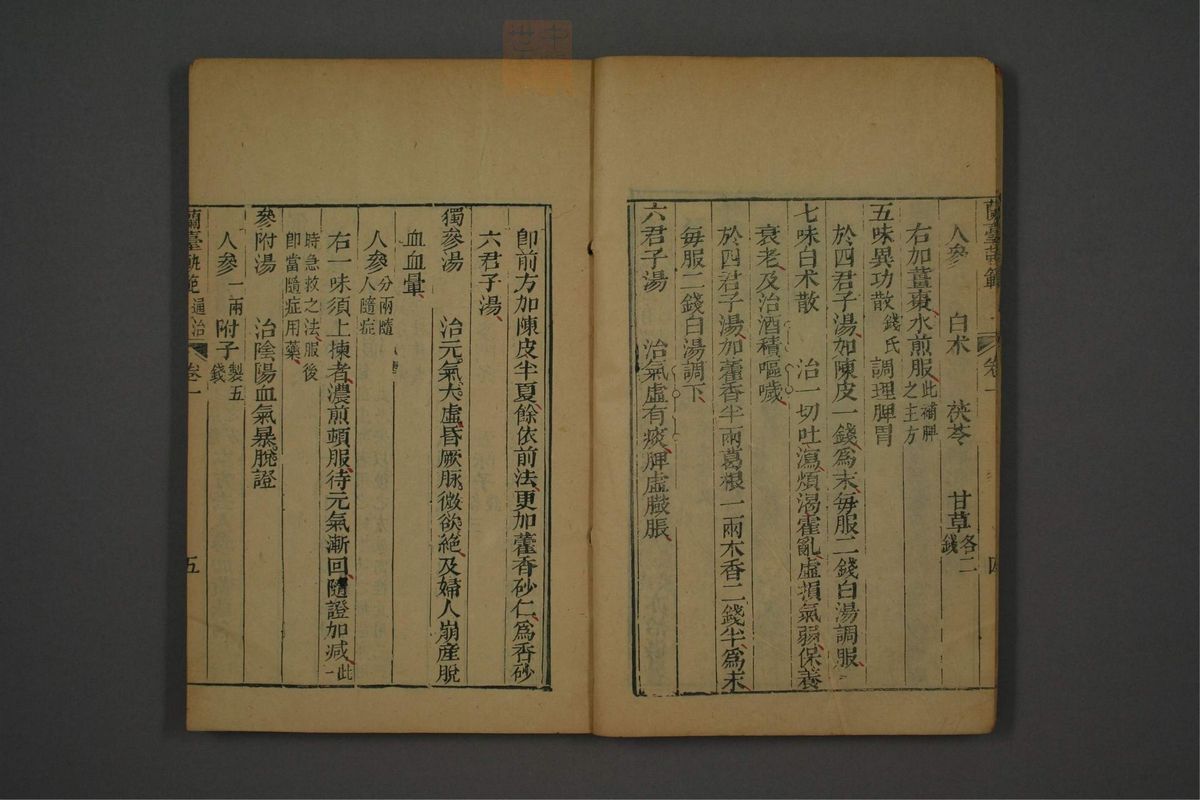 蘭臺軌範 卷一 四
人參 白朮 茯苓 甘草各二錢
右加薑棗水煎服此補脾之主方
五味異功散錢氏 調理脾胃
於四君子湯加陳皮一錢爲末每服二錢白湯調服
七味白朮散 治一切吐瀉煩渴霍亂虛損氣弱保養
衰老及治酒積嘔噦
於四君子湯加藿香半兩葛根一兩木香二錢半爲末
每服二錢白湯調下
六君子湯 治氣虛有痰脾虛臌脹
卽前方加陳皮半夏餘依前法更加藿香砂仁爲香砂
六君子湯
獨參湯 治元氣大虛昏厥脈微欲絕及婦人崩產脫
血血暈
人參分兩隨人隨症
右一味須上揀者濃煎頓服待元氣漸回隨證加減此一
時急救之法服後卽當隨症用藥
參附湯 治陰陽血氣暴脫證
人參一兩 附子製五錢
蘭臺軌範 通治 卷一 五